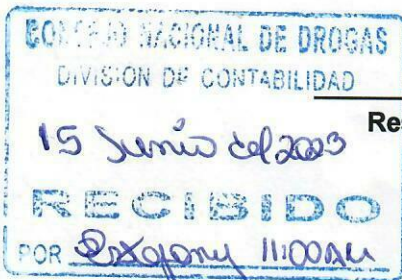 CONSEJO NACIONAL DE DROGAS
DIVISION DE CONTABILIDAD
Re
15 Junio del 2023
RECIBIDO
POR 11:00AM